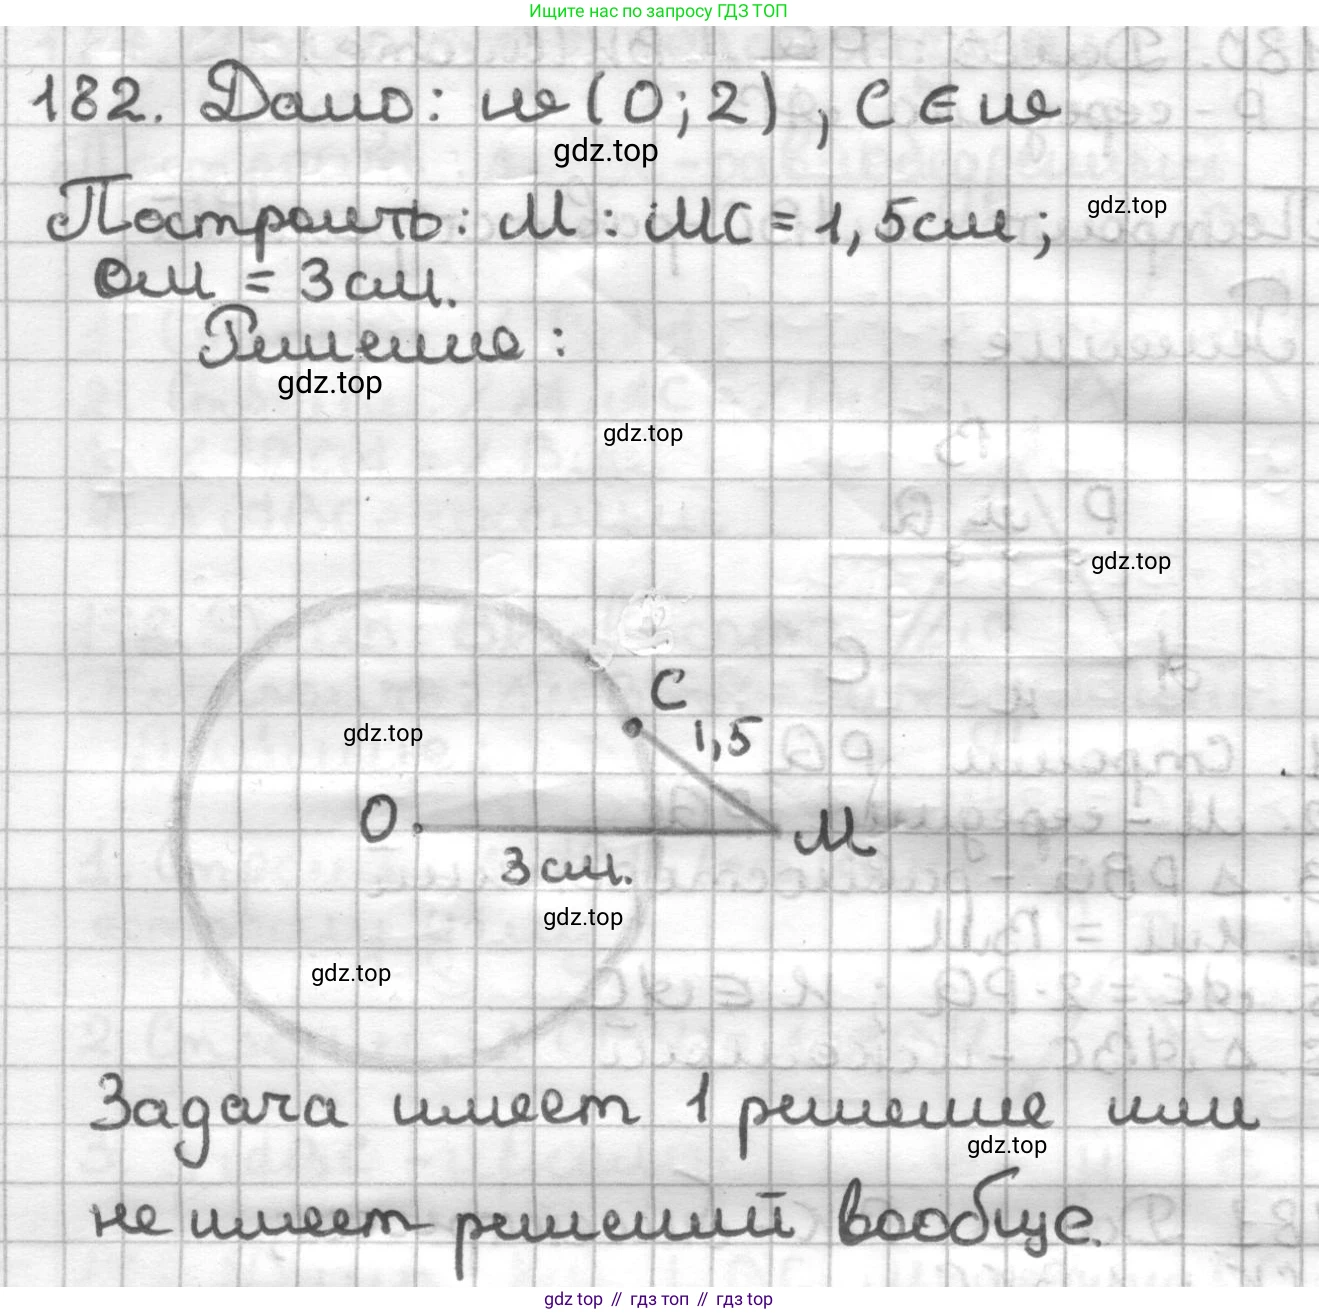 Ищите нас по запросу ГДЗ ТОП
182. Дано: w (O; 2), C ∈ w
gdz.top
Построить: M : MC = 1,5 см;
gdz.top
OM = 3 см.
Решение:
gdz.top
gdz.top
gdz.top
C
1,5
gdz.top
O
M
3 см.
gdz.top
gdz.top
Задача имеет 1 решение или
gdz.top
не имеет решений вообще.
gdz top // гдз топ // гдз top